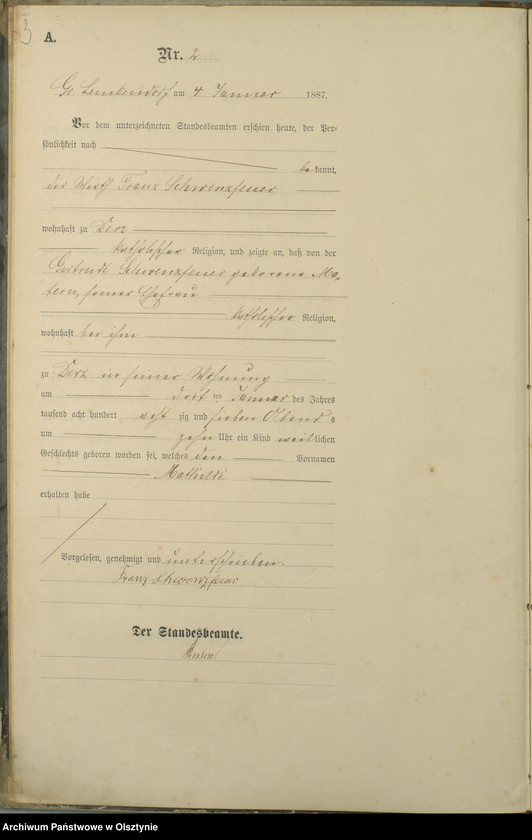 3
A.
Nr. 2.
Gr Lemkendorf am 4 Januar 1887.
Vor dem unterzeichneten Standesbeamten erschien heute, der Per-
sönlichkeit nach
bekannt,
der Wirth Franz Schwenzfeuer
wohnhaft zu Derz
katholischer Religion, und zeigte an, daß von der
Gertrude Schwenzfeuer geborene Ma-
tern, seiner Ehefrau
katholischer Religion,
wohnhaft bei ihm
zu Derz in seiner Wohnung
am dritten Januar des Jahres
tausend acht hundert achtzig und sieben Abends
um zehn Uhr ein Kind weiblichen
Geschlechts geboren worden sei, welches den Vornamen
Mathilde
erhalten habe
Vorgelesen, genehmigt und unterschrieben.
Franz Schwenzfeuer
Der Standesbeamte.
Archiwum Państwowe w Olsztynie